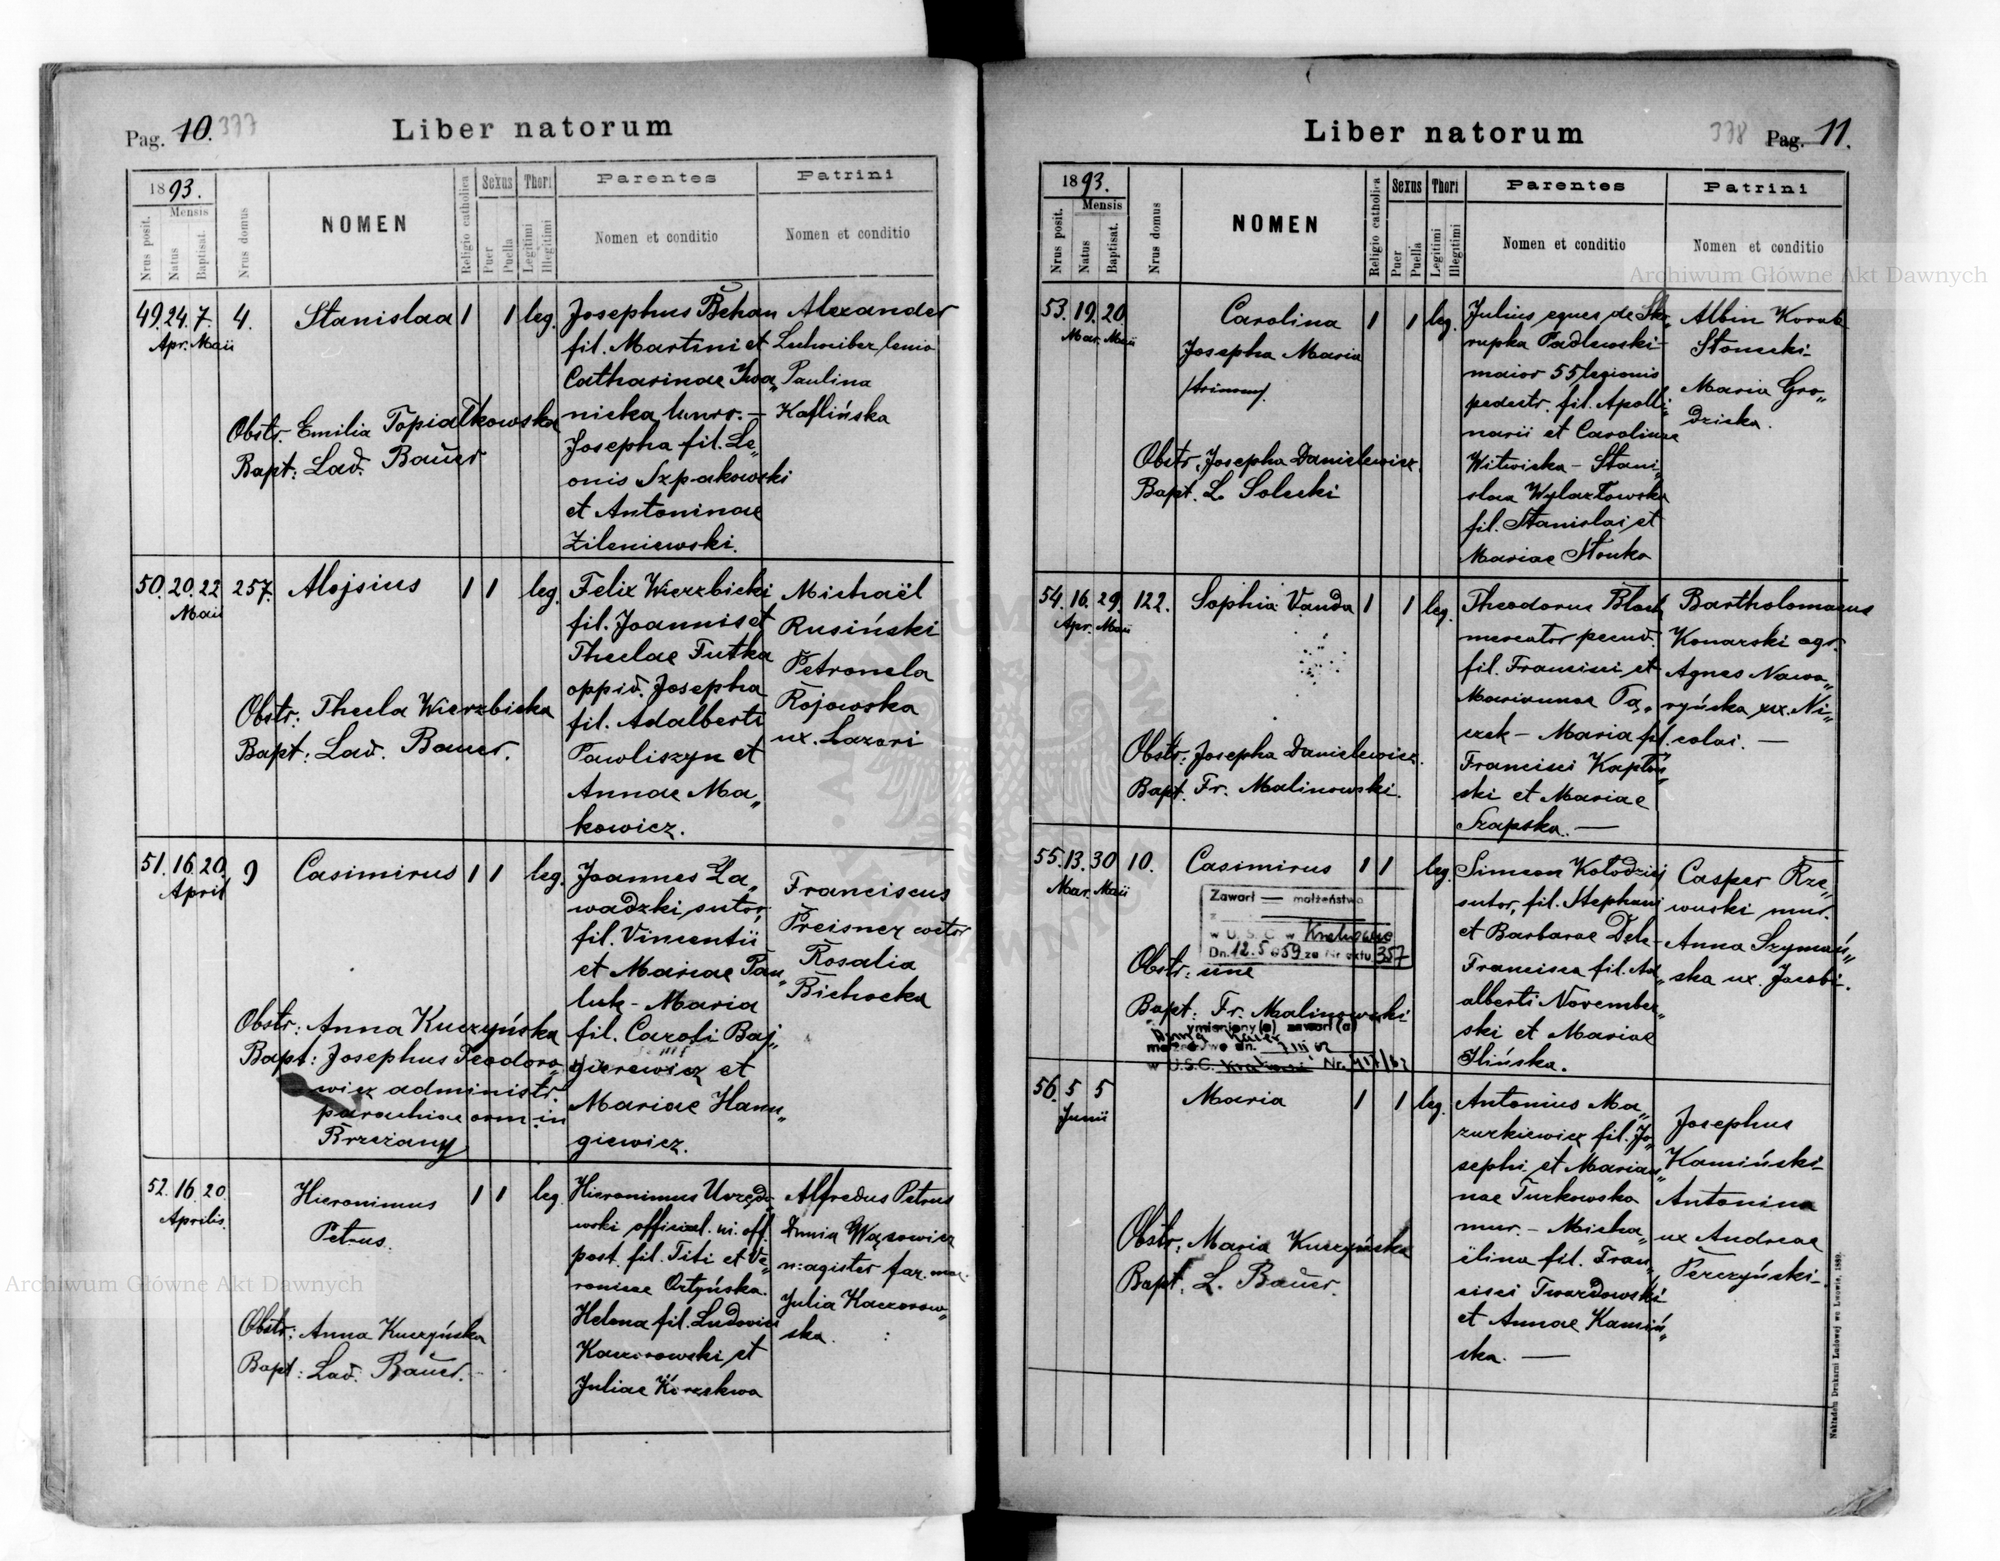 Pag. 10. 377
Liber natorum
1893.
Nrus posit.
Mensis
Natus
Baptisat.
Nrus domus
NOMEN
Religio catholica
Sexus
Puer
Puella
Thori
Legitimi
Illegitimi
Parentes
Nomen et conditio
Patrini
Nomen et conditio
49. 24. 7. 4. Stanislaa 1 1 leg.
Apr. Maii
Obstr. Emilia Topiałkowska
Bapt: Lad. Bauer
Josephus Behan
fil. Martini et
Catharinae Iwa„
nicka
Josepha fil. Le„
onis Szpakowski
et Antoninae
Zileniewski.
Alexander
Paulina
Kaflińska
50. 20. 22 257. Alojsius 1 1 leg.
Maii
Obstr: Thecla Wierzbicka
Bapt: Lad. Bauer.
Felix Wierzbicki
fil. Joannis et
Theclae Futka
oppid. Josepha
fil. Adalberti
Pawliszyn et
Annae Ma„
kowicz.
Michaël
Rusiński
Petronela
Rojowska
ux. Lazari
51. 16. 20. 9 Casimirus 1 1 leg.
April
Obstr: Anna Kuczyńska
Bapt: Josephus Teodoro„
wicz administr.
parochiae orm. in
Brzeżany
Joannes Za„
wadzki, sutor,
fil. Vincentii
et Mariae Pan„
luk - Maria
fil. Caroli Baj„
gierewicz et
Mariae Hanu„
giewicz.
Franciscus
Preisner
Rosalia
Bichocka
52. 16 20. Hieronimus 1 1 leg.
Aprilis.
Petrus.
Obstr: Anna Kuczyńska
Bapt: Lad. Bauer.
Hieronimus Urzędo„
wski official.
post. fil. Titi et Ve„
ronicae Ortyńska.
Helena fil. Ludovici
Kaczorowski et
Juliae Korzekwa
Alfredus Petrus
Wąsowicz
magister far.
Julia Kaczorow„
ska.
Liber natorum
378 Pag. 11.
1893.
Nrus posit.
Mensis
Natus
Baptisat.
Nrus domus
NOMEN
Religio catholica
Sexus
Puer
Puella
Thori
Legitimi
Illegitimi
Parentes
Nomen et conditio
Patrini
Nomen et conditio
53. 19. 20. Carolina 1 1 leg.
Mar. Maii
Josepha Maria
/trinom/.
Obstr. Josepha Danielewicz.
Bapt. L. Solecki
Julius eques de Sko„
rupka Padlewski -
maior 55 legionis
pedestr. fil. Apolli„
narii et Carolinae
Witwicka - Stani„
slaa Wylazłowska
fil. Stanislai et
Mariae Słonka
Albin Korab
Słonecki -
Maria Gro„
dzicka.
54. 16. 29. 122. Sophia Vanda 1 1 leg.
Apr. Maii
Obstr: Josepha Danielewicz.
Bapt. Fr. Malinowski.
Theodorus Bloch
mercator pecud.
fil. Francisci et
Mariannae Tą„
czek - Maria fil.
Francisci Kaptuń„
ski et Mariae
Szapska. —
Bartholomaeus
Konarski agr.
Agnes Nawa„
ryńska ux. Ni„
colai. —
55. 13. 30 10. Casimirus 1 1 leg.
Mar. Maii
Zawarł — małżeństwo
z
w U. S. C. w Krakowie
Dn. 12.5 1959 za Nr aktu 357
Obstr: sine
Bapt: Fr. Malinowski
wymieniony(a) zawarł(a)
małżeństwo dn. 7 III 62
w U.S.C. Krakowie Nr. 417/62
Simeon Kołodziej
sutor, fil. Stephani
et Barbarae Dek -
Francisca fil. Ad„
alberti Novembe„
ski et Mariae
Ilińska.
Casper Rze„
wuski mur.
Anna Szymań„
ska ux. Jacobi.
56. 5 5 Maria 1 1 leg.
Junii
Obstr: Maria Kuczyńska
Bapt. L. Bauer.
Antonius Ma„
zurkiewicz fil. Jo„
sephi et Marian„
nae Turkowska
mur. - Micha„
ëlina fil. Fran„
cisci Twardowski
et Annae Kamiń„
ska. —
Josephus
Kamiński -
Antonina
ux Andreae
Perczyński -
Nakładem Drukarni Ludowej we Lwowie, 1889.
Archiwum Główne Akt Dawnych
Archiwum Główne Akt Dawnych